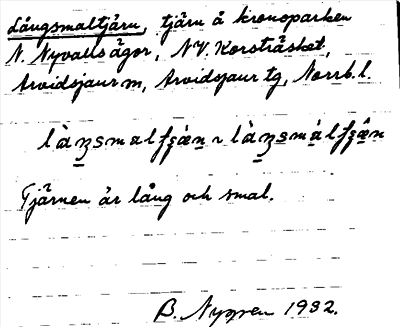 Långsmaltjärn, tjärn å kronoparken
N. Nyvalls ägor, NV. Korsträsket,
Arvidsjaur sn, Arvidsjaur tg, Norrb. l.
Tjärnen är lång och smal.
B. Nygren 1932.